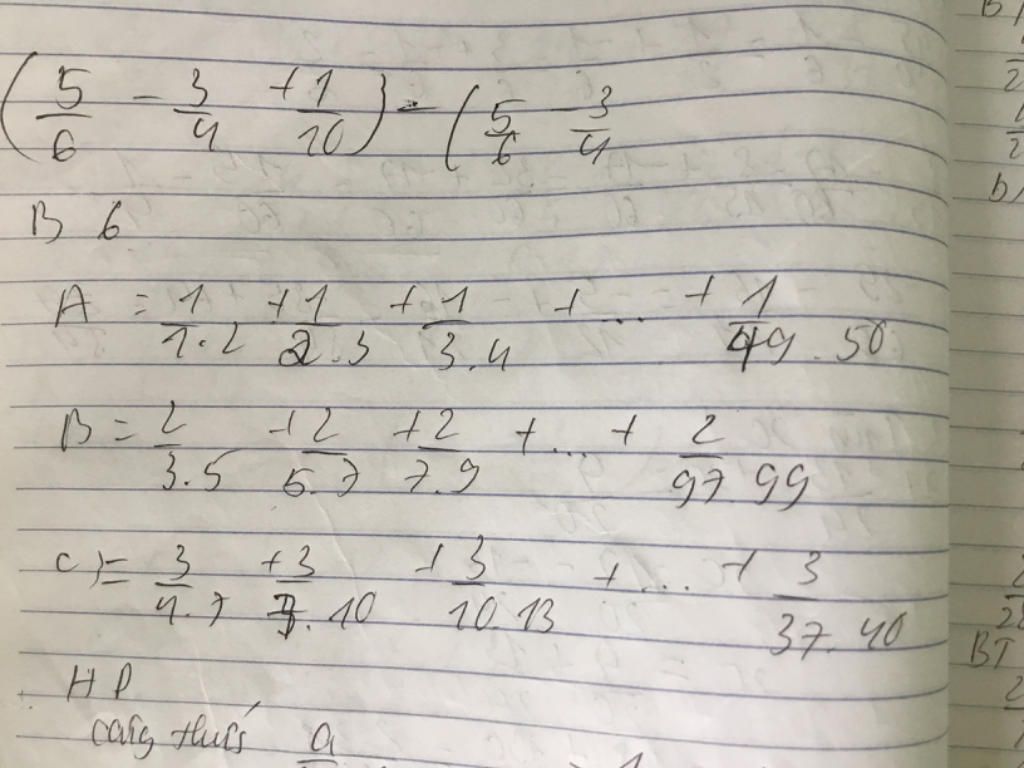 (5/6 - 3/4 + 1/10) - (5/6 - 3/4
B 6
A = 1/1.2 + 1/2.3 + 1/3.4 + ... + 1/49.50
B = 2/3.5 + 2/5.7 + 2/7.9 + ... + 2/97.99
C) = 3/4.7 + 3/7.10 + 3/10.13 + ... + 3/37.40
HD
công thức a